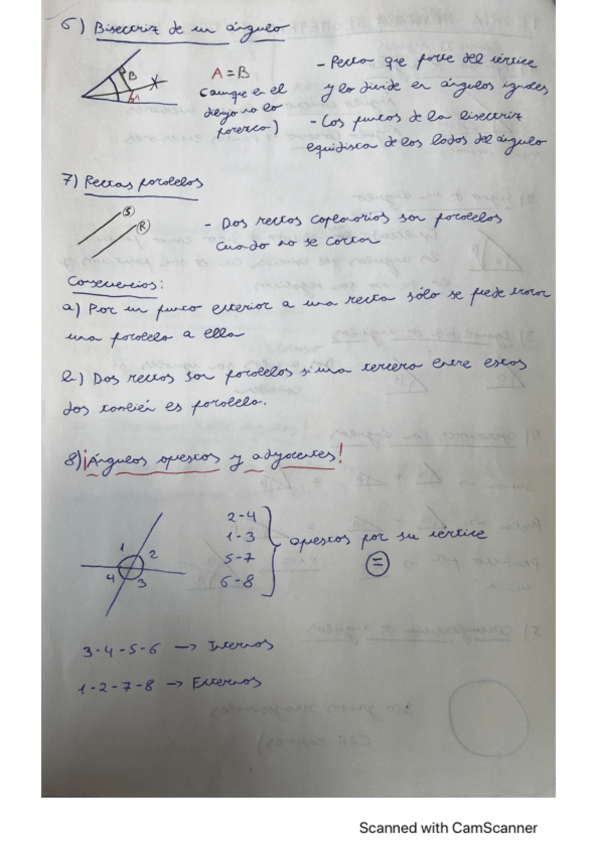 6) Bisectriz de un ángulo
B
A
A = B
(aunque en el
dibujo no lo
parezca)
- Recta que parte del vértice
y lo divide en ángulos iguales
- Los puntos de la bisectriz
equidista de los lados del ángulo
7) Rectas paralelas
S
R
- Dos rectas coplanarias son paralelas
cuando no se cortan
Consecuencias:
a) Por un punto exterior a una recta sólo se puede trazar
una paralela a ella
b) Dos rectas son paralelas si una tercera entre estas
dos también es paralela.
8) ¡Ángulos opuestos y adyacentes!
1 2
4 3
2-4
1-3
5-7
6-8
opuestos por su vértice
=
3-4-5-6 → Internos
1-2-7-8 → Externos
Scanned with CamScanner